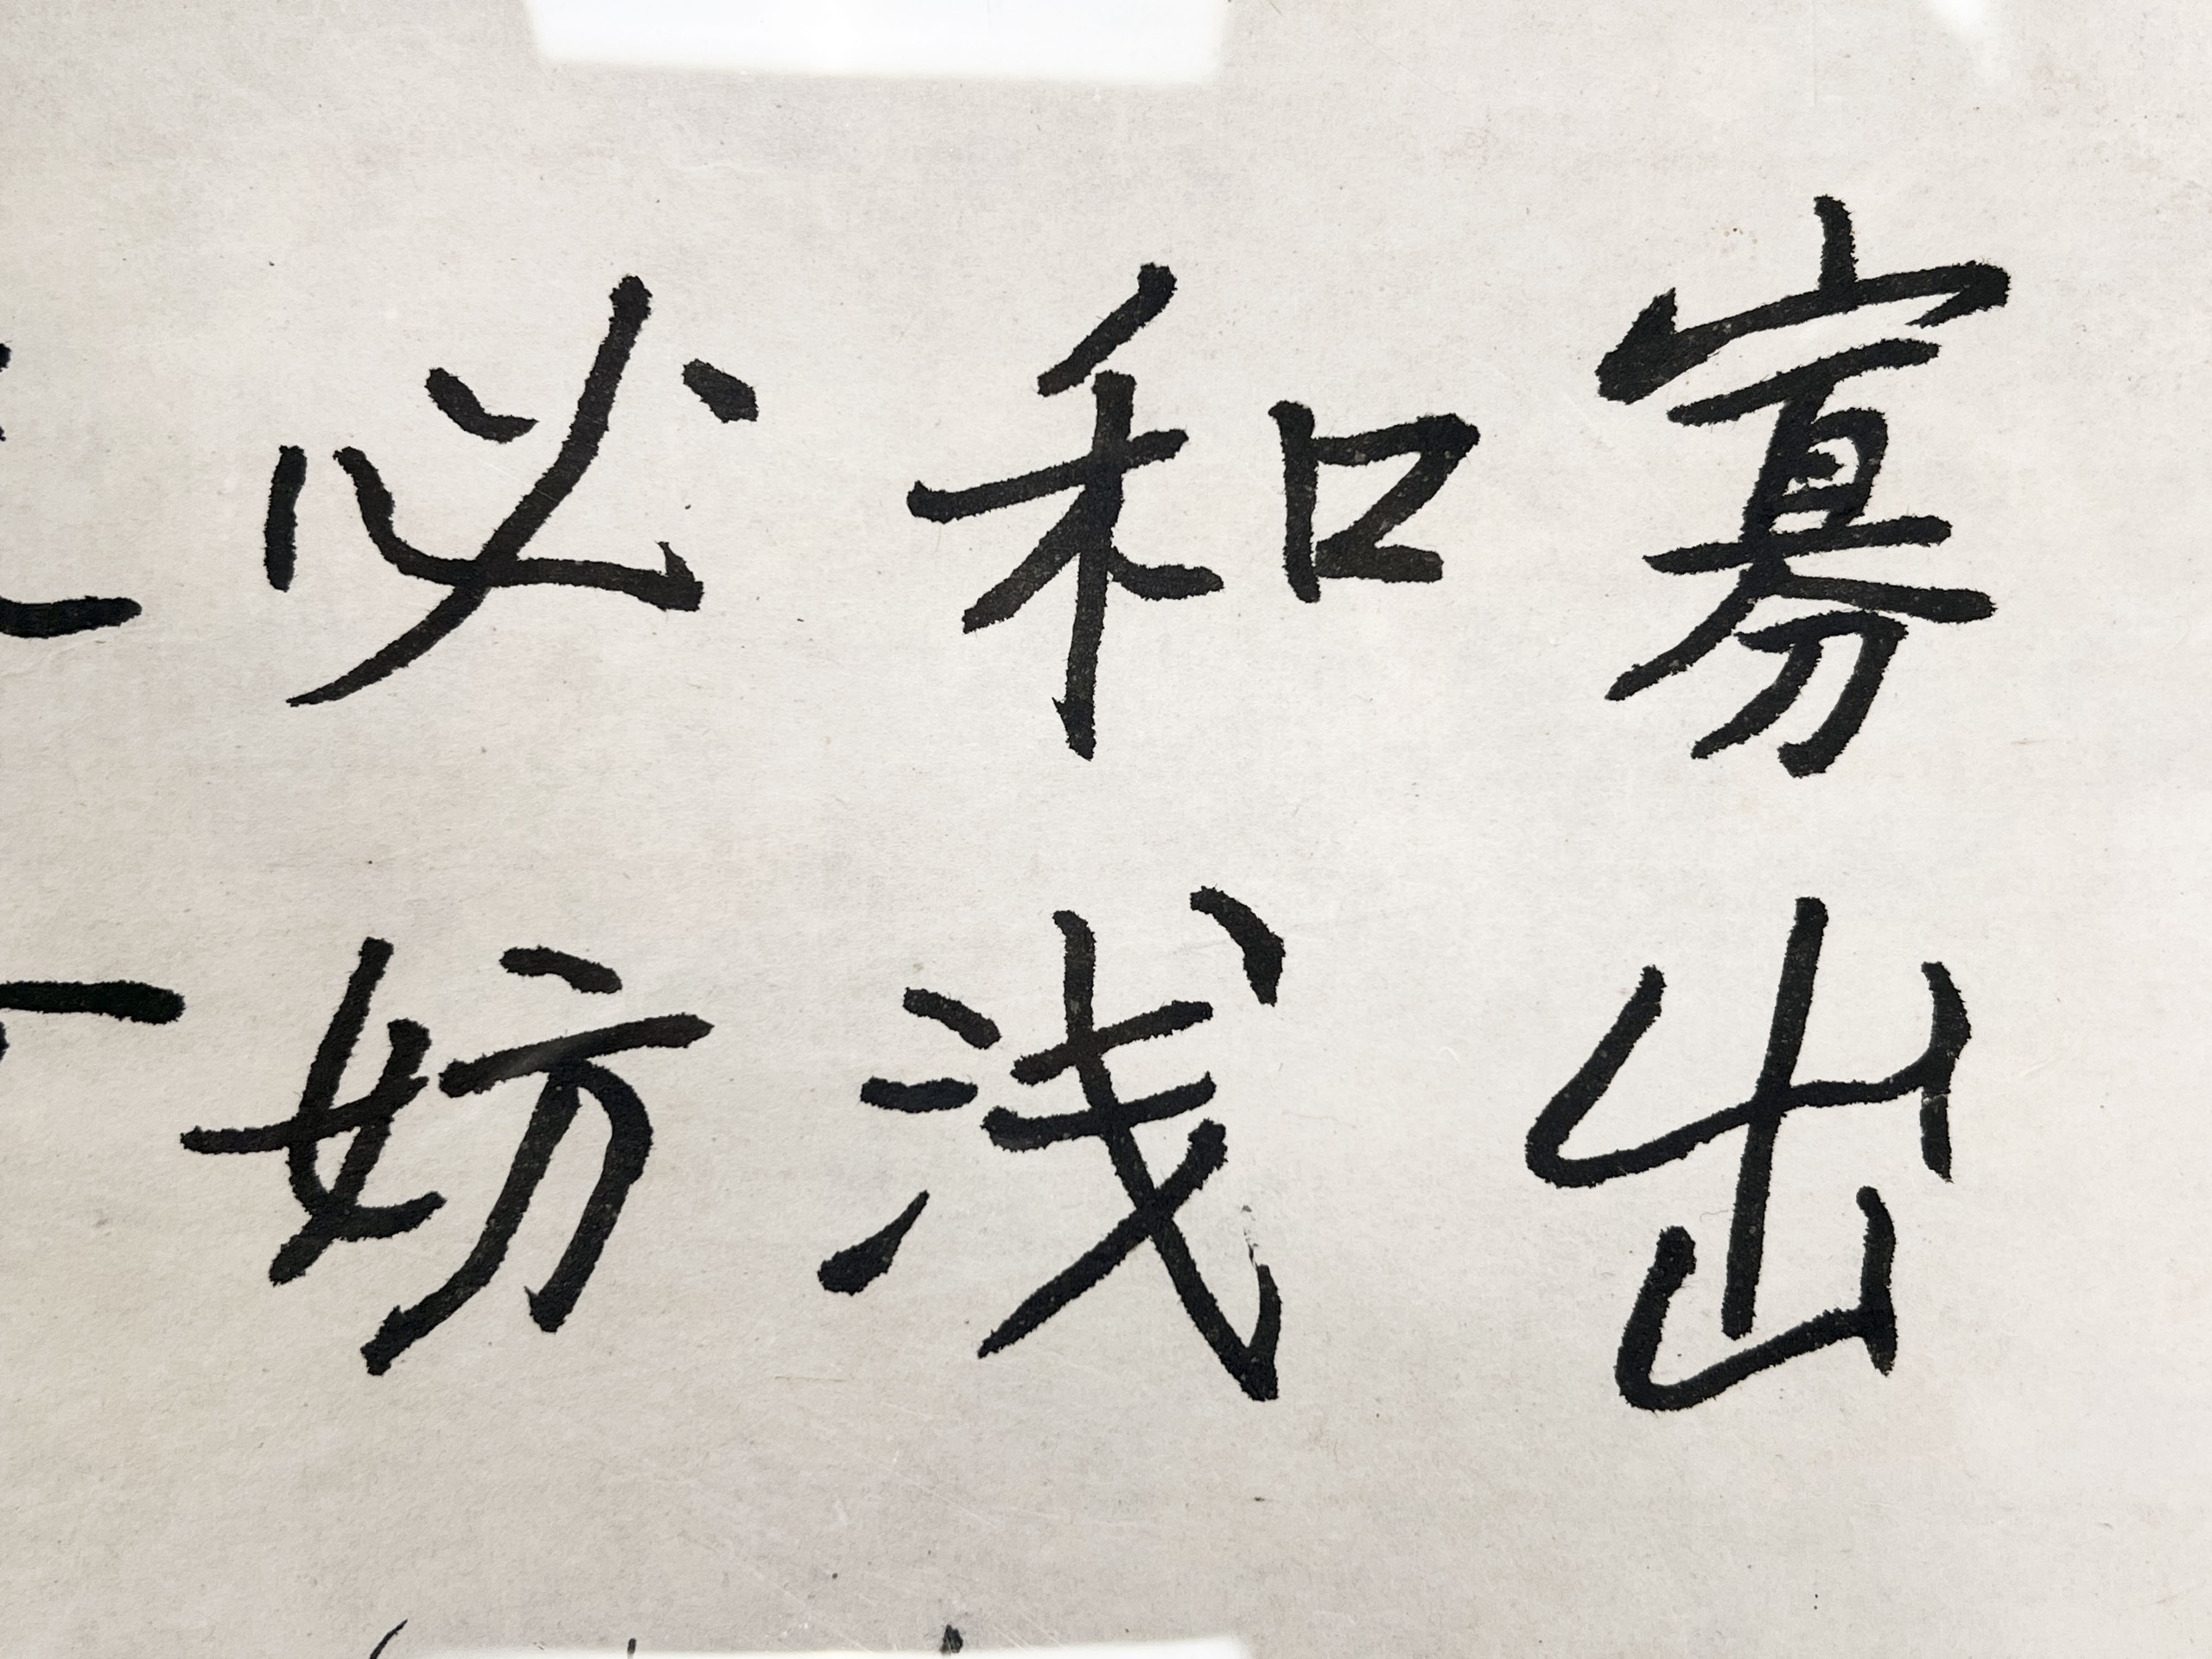 必和寡
妨浅出